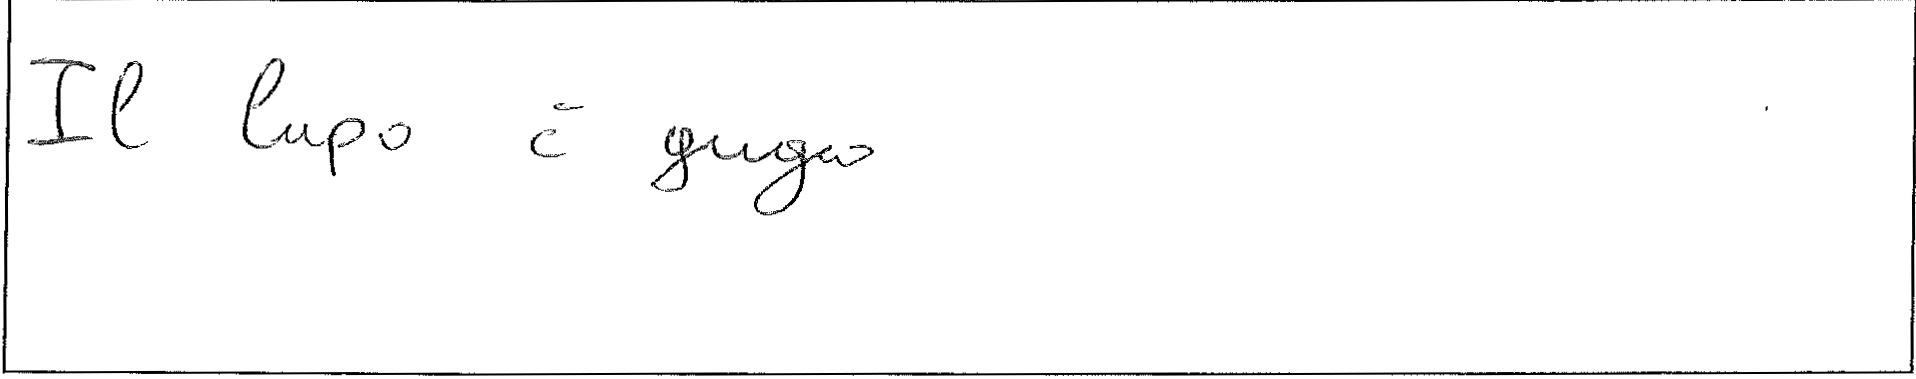 Il lupo è gugio